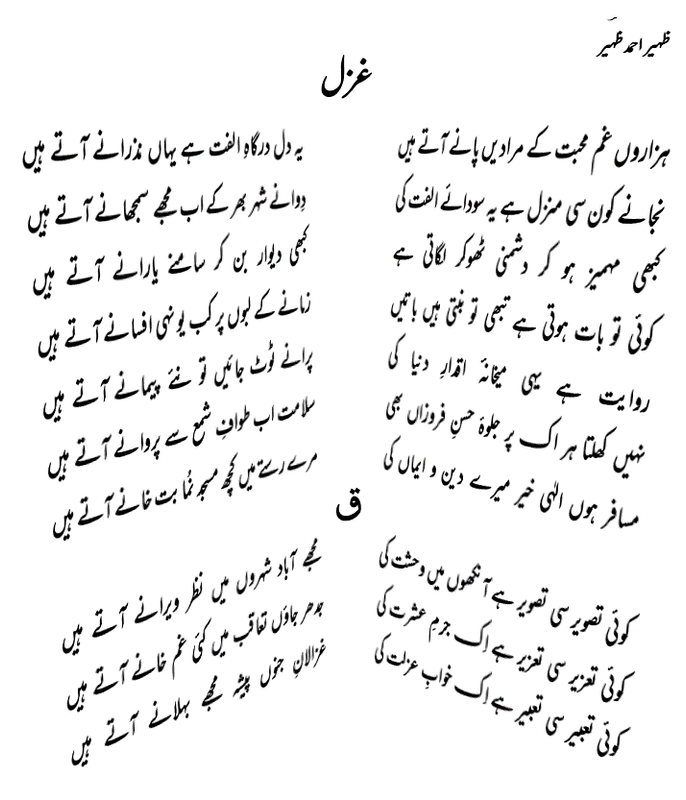 ظہیر احمد ظہیر
غزل
ہزاروں غم محبت کے مرادیں پانے آتے ہیں
یہ دل درگاہِ الفت ہے یہاں نذرانے آتے ہیں
نجانے کون سی منزل ہے یہ سودائے الفت کی
دِوانے شہر بھر کے اب مجھے سمجھانے آتے ہیں
کبھی مہمیز ہو کر دشمنی ٹھوکر لگاتی ہے
کبھی دیوار بن کر سامنے یارانے آتے ہیں
کوئی تو بات ہوتی ہے تبھی تو بنتی ہیں باتیں
زمانے کے لبوں پر کب یونہی افسانے آتے ہیں
روایت ہے یہی میخانۂ اقدارِ دنیا کی
پرانے ٹوٹ جائیں تو نئے پیمانے آتے ہیں
نہیں کھلتا ہر اک پر جلوۂ حسنِ فروزاں بھی
سلامت اب طوافِ شمع سے پروانے آتے ہیں
مسافر ہوں الٰہی خیر میرے دین و ایماں کی
مرے رستے میں کچھ مسجد نُما بت خانے آتے ہیں
ق
کوئی تصویر سی تصویر ہے آنکھوں میں وحشت کی
مجھے آباد شہروں میں نظر ویرانے آتے ہیں
کوئی تعزیر سی تعزیر ہے اِک جرمِ عشرت کی
جدھر جاؤں تعاقب میں کئی غم خانے آتے ہیں
کوئی تعبیر سی تعبیر ہے اِک خوابِ عزلت کی
غزالانِ جنوں پیشہ مجھے بہلانے آتے ہیں